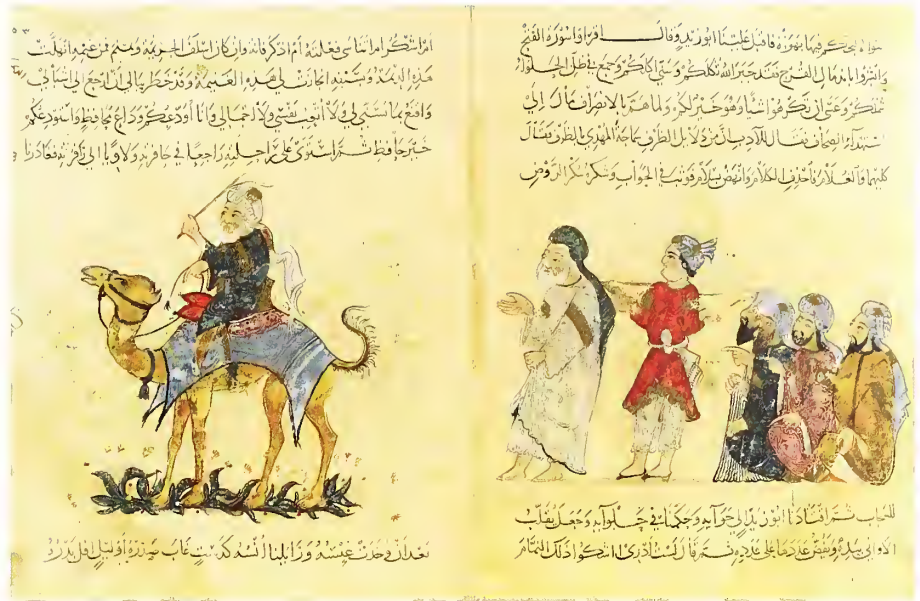 فيها بهواه فاقبل علينا ابو زيد وقال اقرأوا سورة الفتح
وابشروا باندمال القرح فقد جبر الله ثكلكم وسنى اكلكم وجمع في ظل الحلواء
شملكم وعسى ان تكرهوا شيئا وهو خير لكم ولما هم بالانصراف مال الى
استهداء الصحاف فقال للآدب ان من دلائل الظرف سماحة المهدي بالظرف فقال
كليهما والغلام فاحذف الكلام وانهض بسلام فوثب في الجواب وشكره شكر الروض
للسحاب ثم اقتادنا ابو زيد الى حوآيه وحكمنا في حلوآيه وجعل يقلب
الاواني بيده ويفض عددها على عدده ثم قال لست ادرى اشكوا ذلك النمام
ام اشكر ام اتناسى فعلته ام اذكر فانه وان كان اسلف الجريمة ونمنم فمن غيمه انهلت
هذه الديمة وبسيفه انحازت لي هذه الغنيمة وقد خطر ببالي ان ارجع الى اشبالي
واقنع بما تسنى لي ولا اتعب نفسي ولا اجمالي وانا اودعكم وداع محافظ واستودعكم
خير حافظ ثم استوى على راحلته راجعا في حافرته ولاويا الى زافرته فغادرنا
بعد ان وخدت عنسه وزايلنا انسه كدست غاب صدره او ليل افل بدره